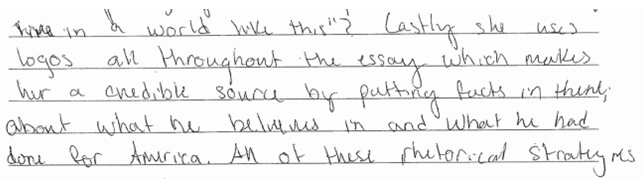 in a world like this"? Lastly she uses
logos all throughout the essay which makes
her a credible source by putting facts in there,
about what he believes in and what he had
done for America. All of these rhetorical strategys